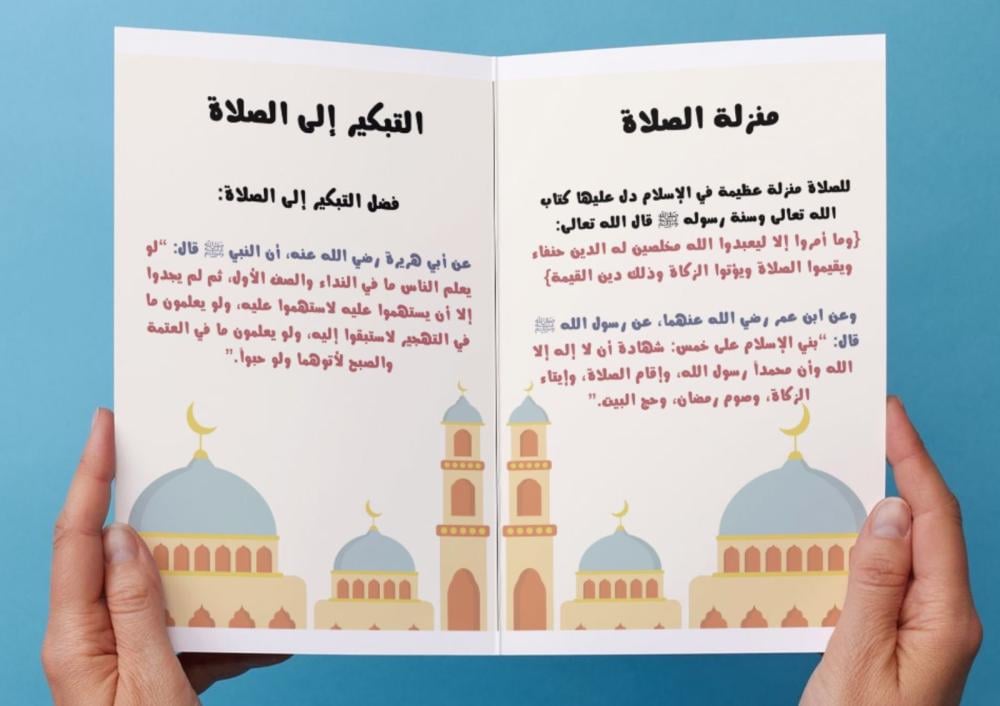 منزلة الصلاة
للصلاة منزلة عظيمة في الإسلام دل عليها كتاب
الله تعالى وسنة رسوله ﷺ قال الله تعالى:
{وما أمروا إلا ليعبدوا الله مخلصين له الدين حنفاء
ويقيموا الصلاة ويؤتوا الزكاة وذلك دين القيمة}
وعن ابن عمر رضي الله عنهما، عن رسول الله ﷺ
قال: “بني الإسلام على خمس: شهادة أن لا إله إلا
الله وأن محمداً رسول الله، وإقام الصلاة، وإيتاء
الزكاة، وصوم رمضان، وحج البيت.”
التبكير إلى الصلاة
فضل التبكير إلى الصلاة:
عن أبي هريرة رضي الله عنه، أن النبي ﷺ قال: “لو
يعلم الناس ما في النداء والصف الأول، ثم لم يجدوا
إلا أن يستهموا عليه لاستهموا عليه، ولو يعلمون ما
في التهجير لاستبقوا إليه، ولو يعلمون ما في العتمة
والصبح لأتوهما ولو حبواً.”